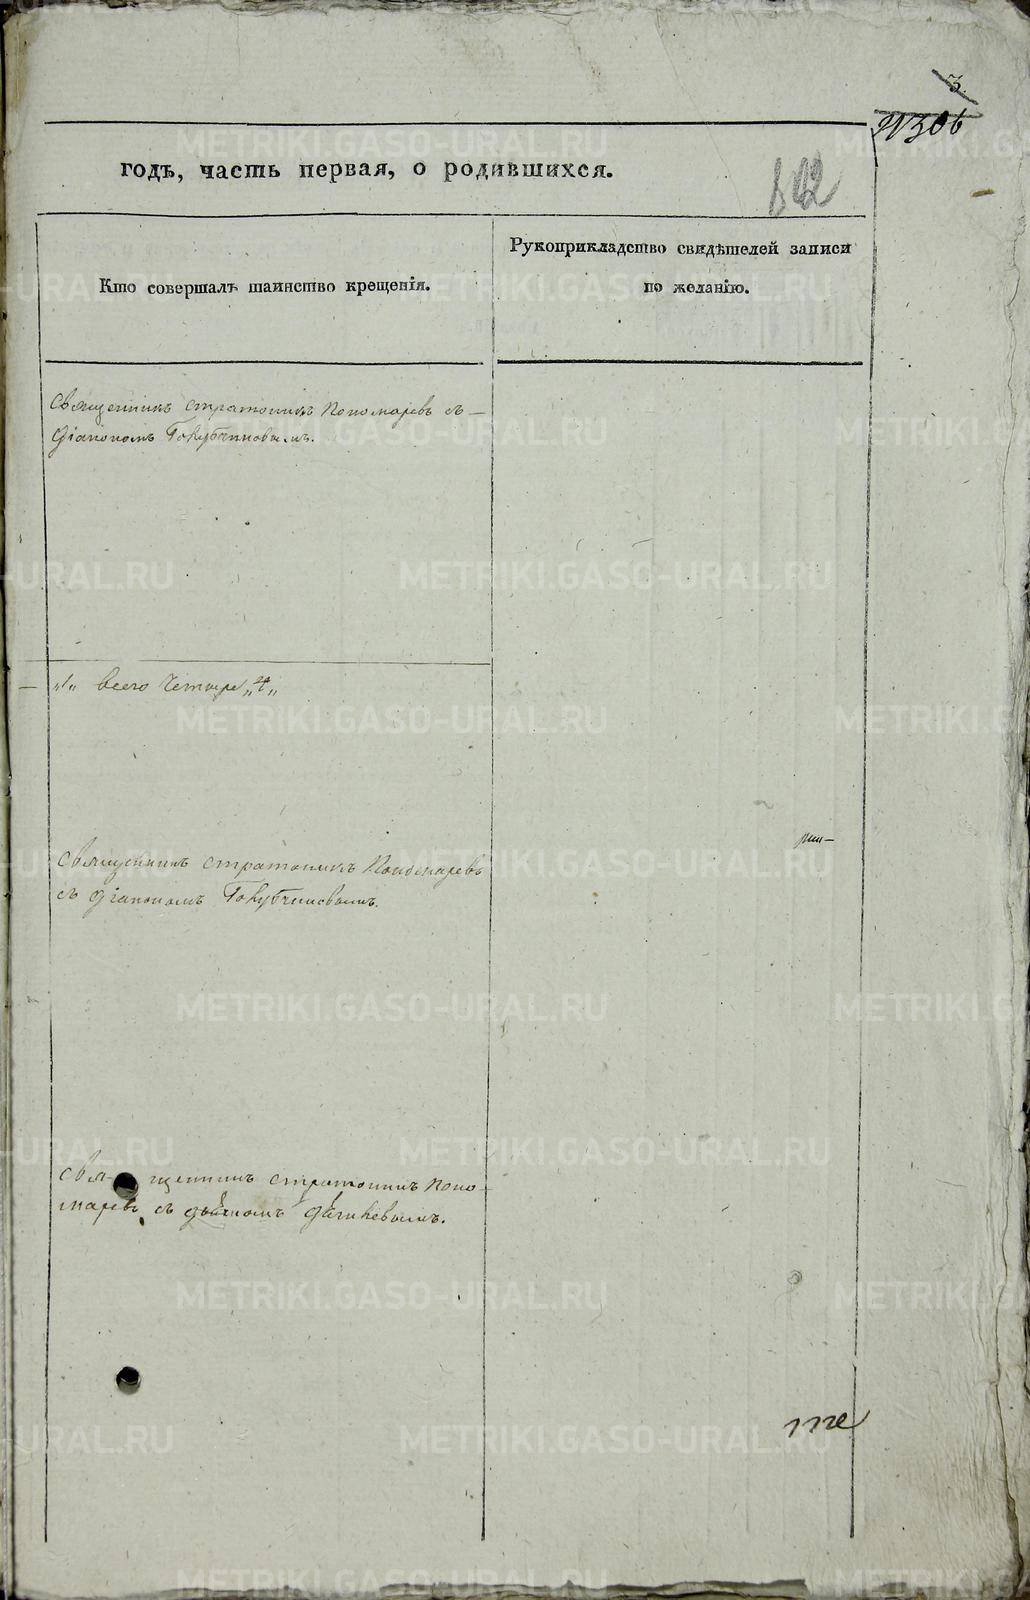 3.
306
годъ, часть первая, о родившихся.
Кто совершалъ таинство крещенія.
Рукоприкладство свидѣтелей записи
по желанію.
Священникъ Стратоникъ Пономаревъ съ
Діакономъ Голубчиковымъ.
— „1„ всего четыре „4„
Священникъ Стратоникъ Пономаревъ
съ Діакономъ Голубчиковымъ.
Священникъ Стратоникъ Поно-
маревъ съ
METRIKI.GASO-URAL.RU